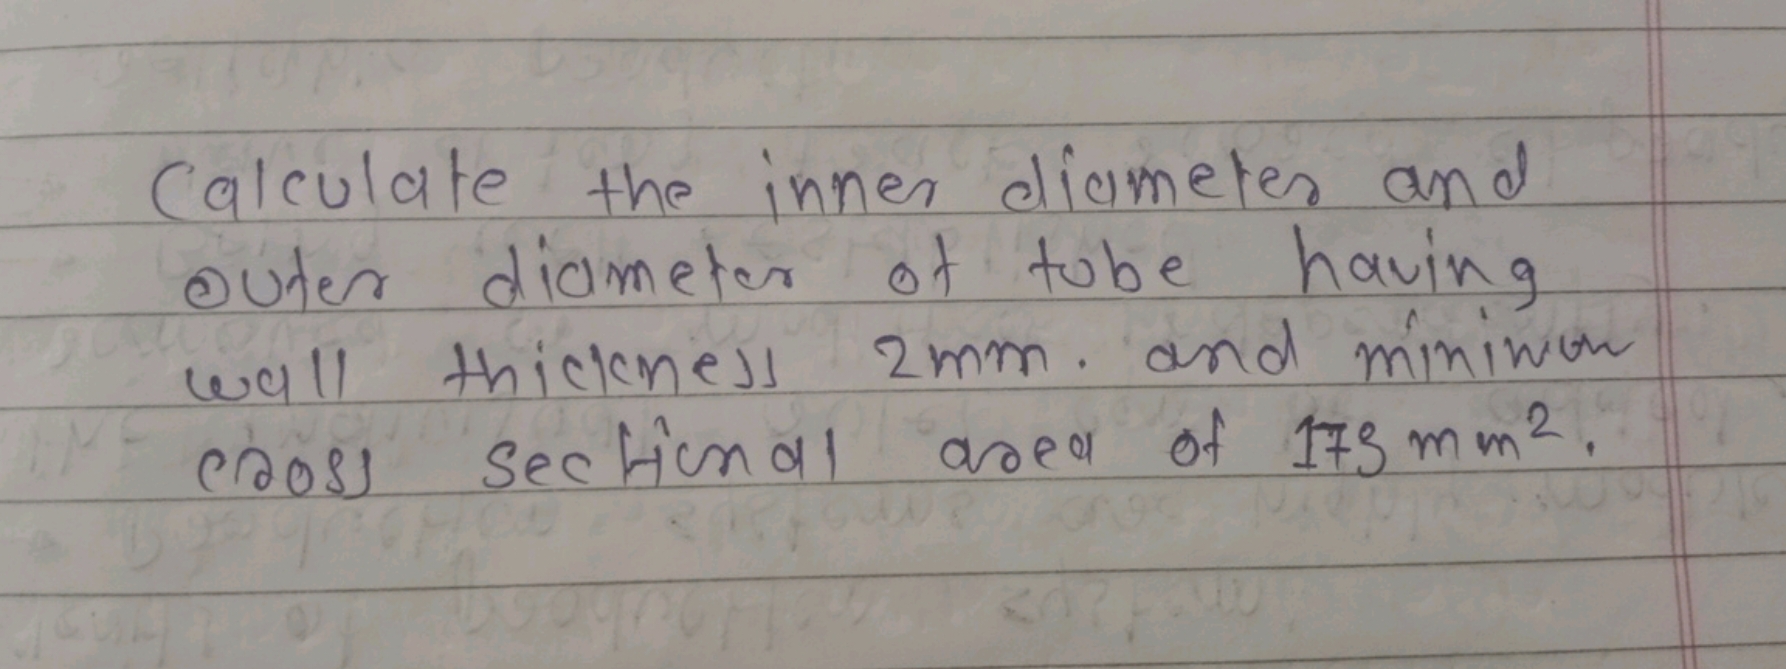 Calculate the inner diameter and
outer diameter of tube having
wall thickness 2mm. and minimum
cross sectional area of 173 mm².